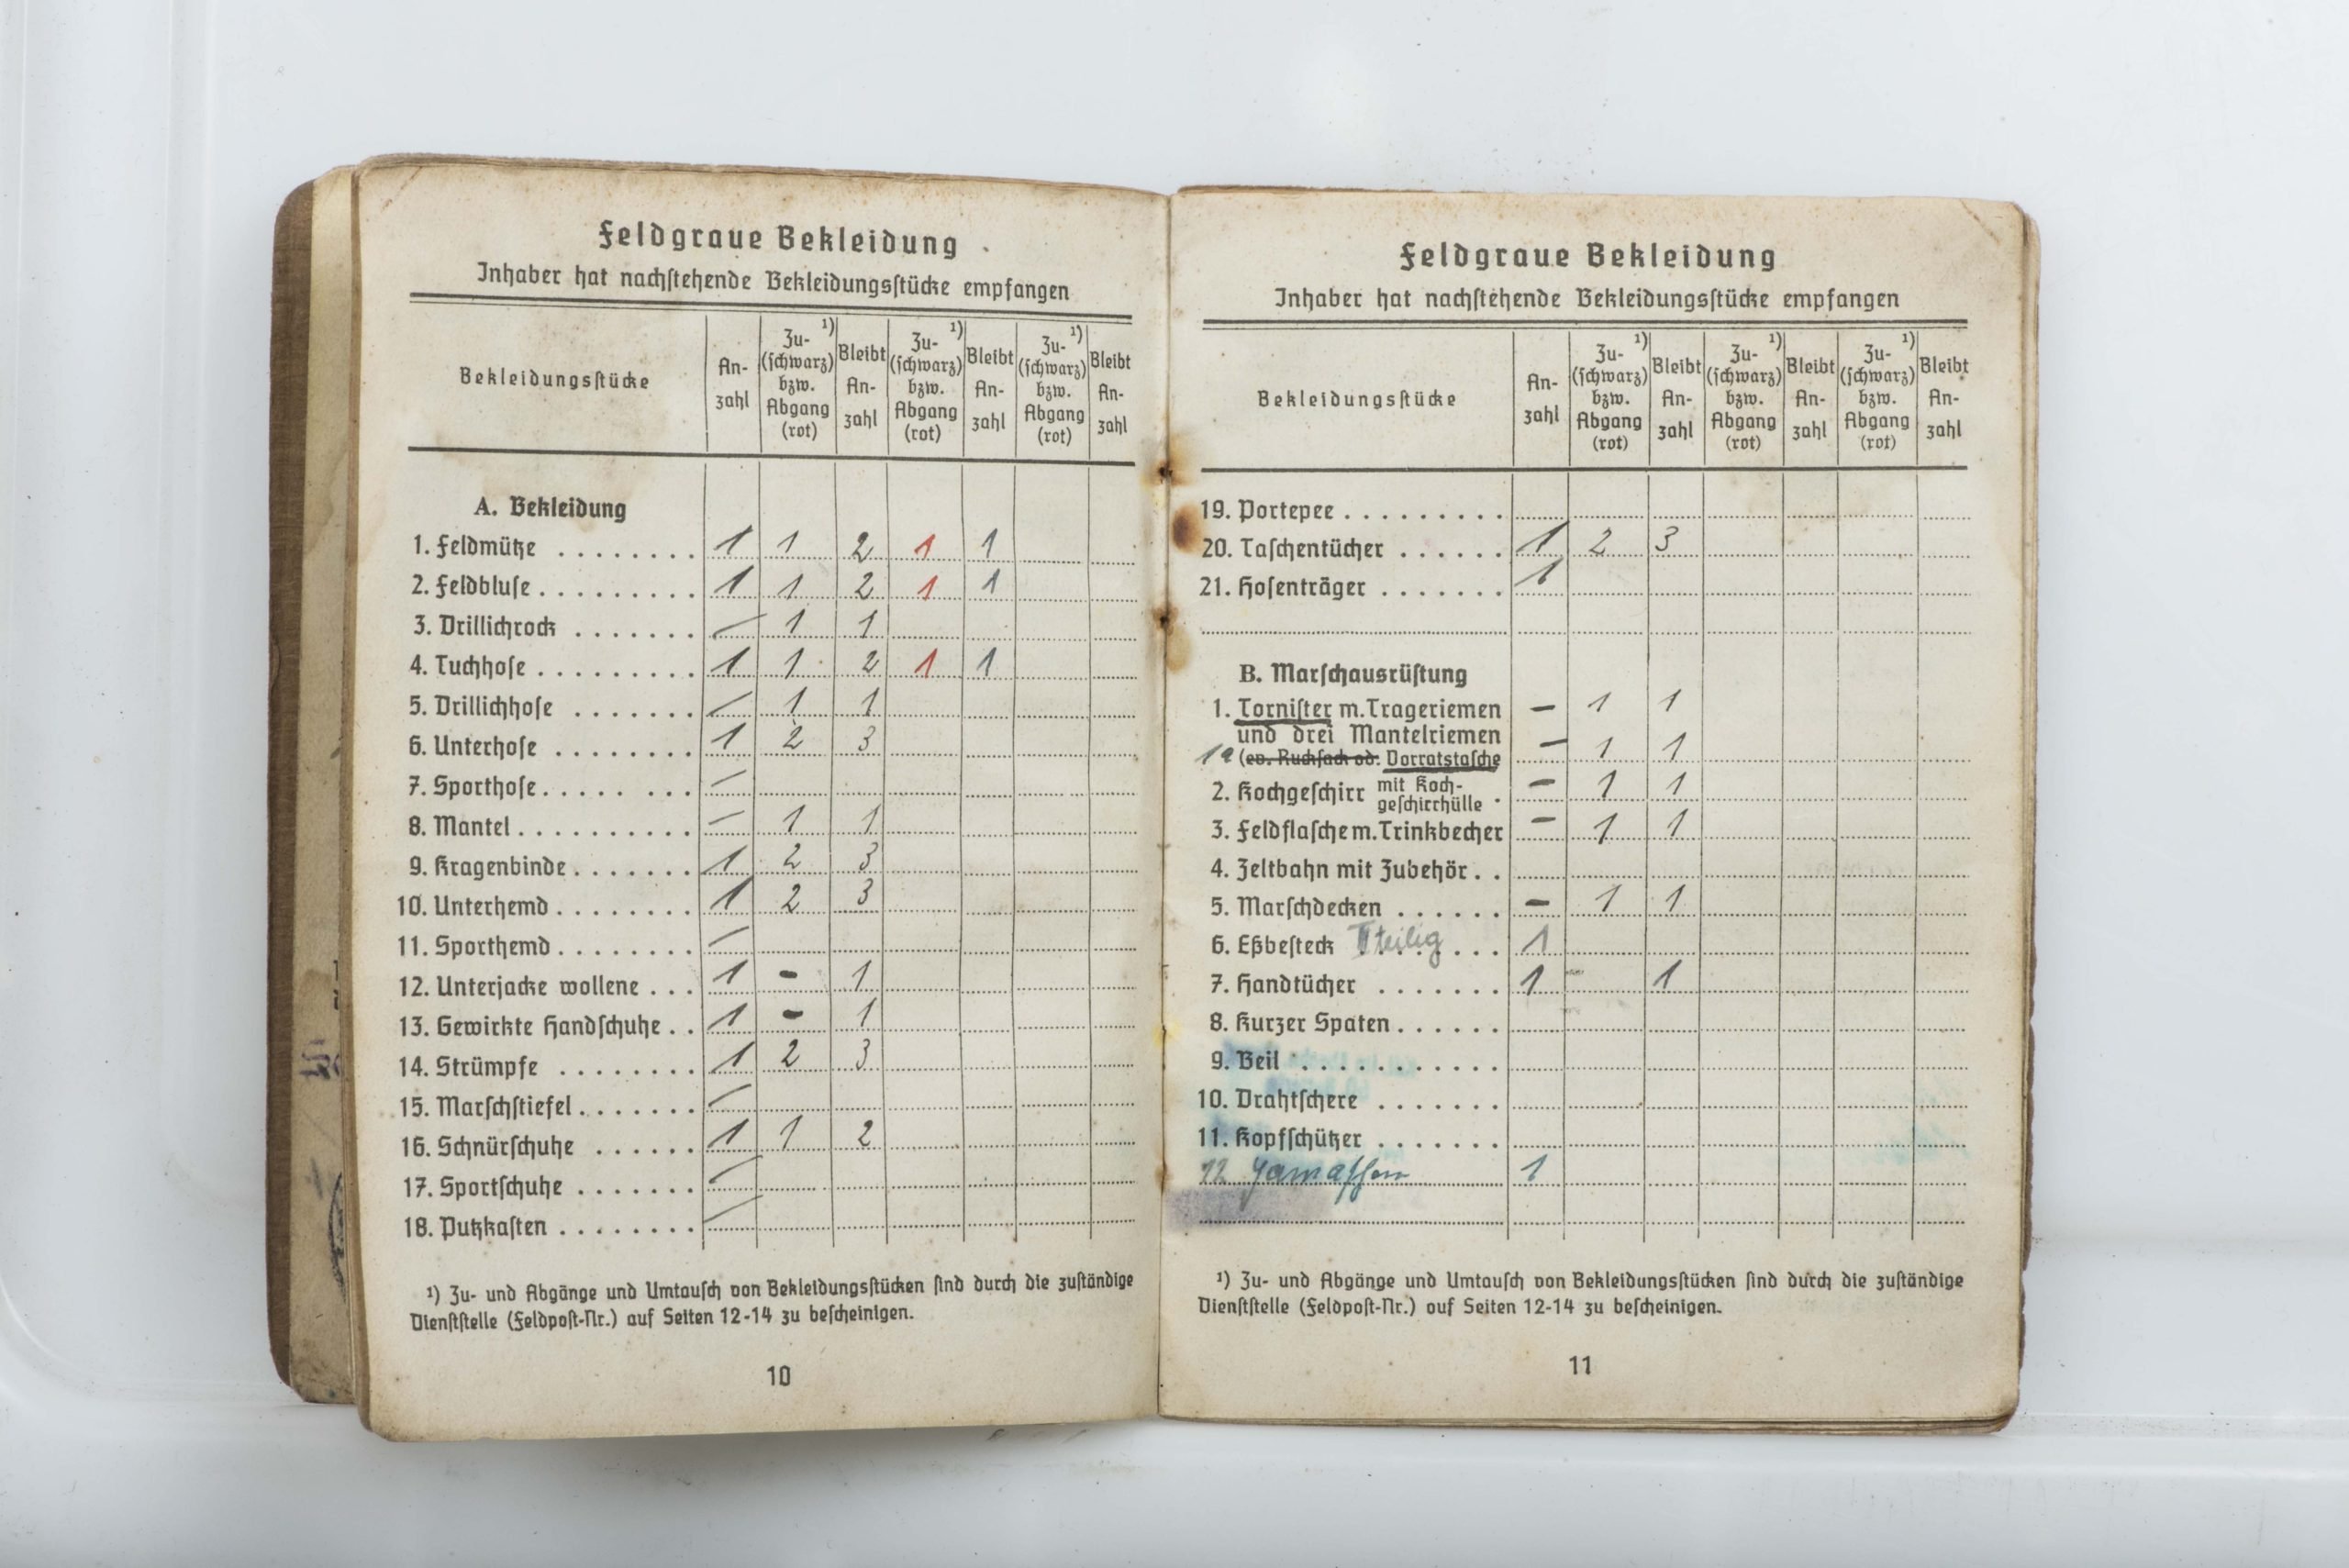 Feldgraue Bekleidung
Inhaber hat nachſtehende Bekleidungsſtücke empfangen
Bekleidungsſtücke An-zahl Zu-¹) (ſchwarz) bzw. Abgang (rot) Bleibt An-zahl Zu-¹) (ſchwarz) bzw. Abgang (rot) Bleibt An-zahl Zu-¹) (ſchwarz) bzw. Abgang (rot) Bleibt An-zahl
A. Bekleidung
1. Feldmütze ........ 1 1 2 1 1
2. Feldbluſe ......... 1 1 2 1 1
3. Drillichrock ....... – 1 1
4. Tuchhoſe ......... 1 1 2 1 1
5. Drillichhoſe ....... – 1 1
6. Unterhoſe ........ 1 2 3
7. Sporthoſe ..... ... –
8. Mantel .......... – 1 1
9. Kragenbinde ....... 1 2 3
10. Unterhemd ........ 1 2 3
11. Sporthemd ........ –
12. Unterjacke wollene ... 1 - 1
13. Gewirkte Handſchuhe .. 1 - 1
14. Strümpfe ........ 1 2 3
15. Marſchſtiefel ....... –
16. Schnürſchuhe ...... 1 1 2
17. Sportſchuhe ....... –
18. Putzkaſten ........ –
¹) Zu- und Abgänge und Umtauſch von Bekleidungsſtücken ſind durch die zuſtändige
Dienſtſtelle (Feldpoſt-Nr.) auf Seiten 12-14 zu beſcheinigen.
10
Feldgraue Bekleidung
Inhaber hat nachſtehende Bekleidungsſtücke empfangen
Bekleidungsſtücke An-zahl Zu-¹) (ſchwarz) bzw. Abgang (rot) Bleibt An-zahl Zu-¹) (ſchwarz) bzw. Abgang (rot) Bleibt An-zahl Zu-¹) (ſchwarz) bzw. Abgang (rot) Bleibt An-zahl
19. Portepee .........
20. Taſchentücher ...... 1 2 3
21. Hoſenträger ....... 1
B. Marſchausrüſtung
1. Torniſter m. Trageriemen – 1 1
und drei Mantelriemen
1a (ev. Ruckſack od. Vorratstaſche – 1 1
2. Kochgeſchirr mit Koch-geſchirrhülle . – 1 1
3. Feldflaſche m. Trinkbecher – 1 1
4. Zeltbahn mit Zubehör ..
5. Marſchdecken ...... – 1 1
6. Eßbeſteck teilig ... 1
7. Handtücher ....... 1 1
8. Kurzer Spaten ......
9. Beil ...........
10. Drahtſchere .......
11. Kopfſchützer .......
12 Gamaſchen 1
¹) Zu- und Abgänge und Umtauſch von Bekleidungsſtücken ſind durch die zuſtändige
Dienſtſtelle (Feldpoſt-Nr.) auf Seiten 12-14 zu beſcheinigen.
11